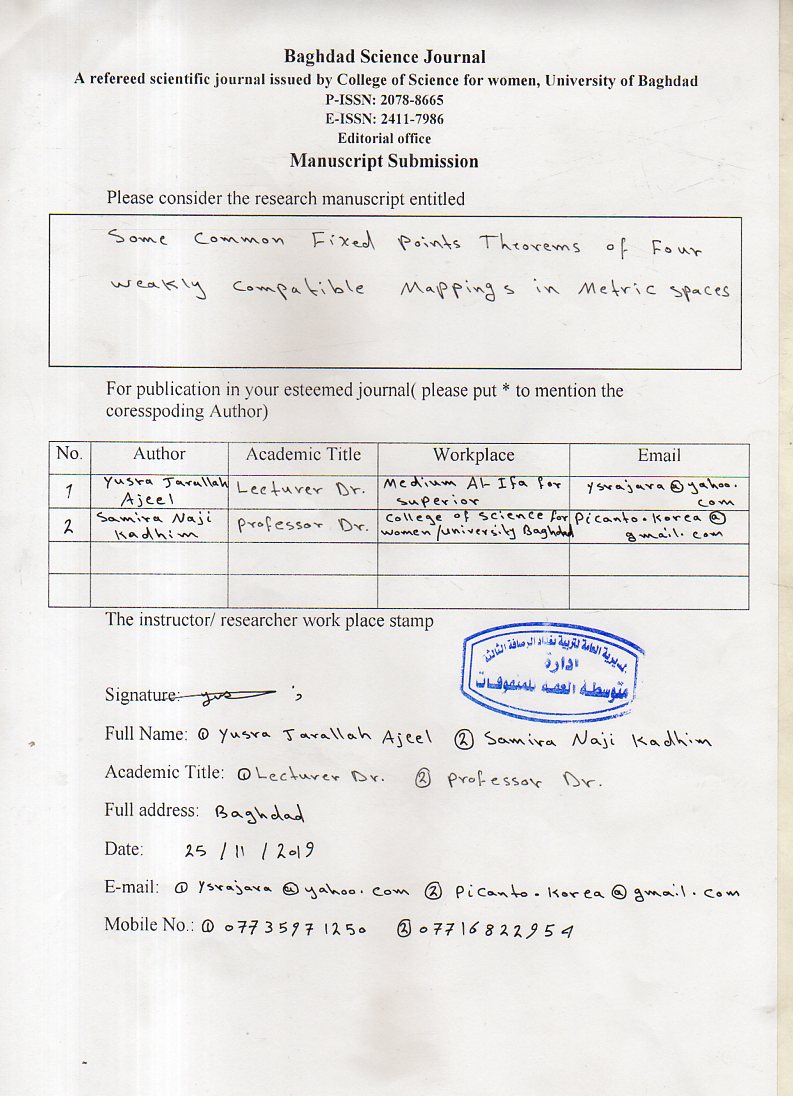 Baghdad Science Journal
A refereed scientific journal issued by College of Science for women, University of Baghdad
P-ISSN: 2078-8665
E-ISSN: 2411-7986
Editorial office
Manuscript Submission
Please consider the research manuscript entitled
Some Common Fixed Points Theorems of Four
weakly Compatible Mappings in Metric spaces
For publication in your esteemed journal( please put * to mention the
coresspoding Author)
No. Author Academic Title Workplace Email
1 Yusra Jarallah Ajeel Lecturer Dr. Medium AL Ifa for superior ysrajara@yahoo.com
2 Samira Naji Kadhim professor Dr. College of science for women/university Baghdad Picanto.Korea@gmail.com
The instructor/ researcher work place stamp
المديرية العامة لتربية بغداد الرصافة الثالثة
ادارة
متوسطة العفة للمتفوقات
Signature:
Full Name: ① Yusra Jarallah Ajeel ② Samira Naji Kadhim
Academic Title: ① Lecturer Dr. ② professor Dr.
Full address: Baghdad
Date: 25 / 11 / 2019
E-mail: ① Ysrajara@yahoo.com ② Picanto.Korea@gmail.com
Mobile No.: ① 07735971250 ② 07716822954